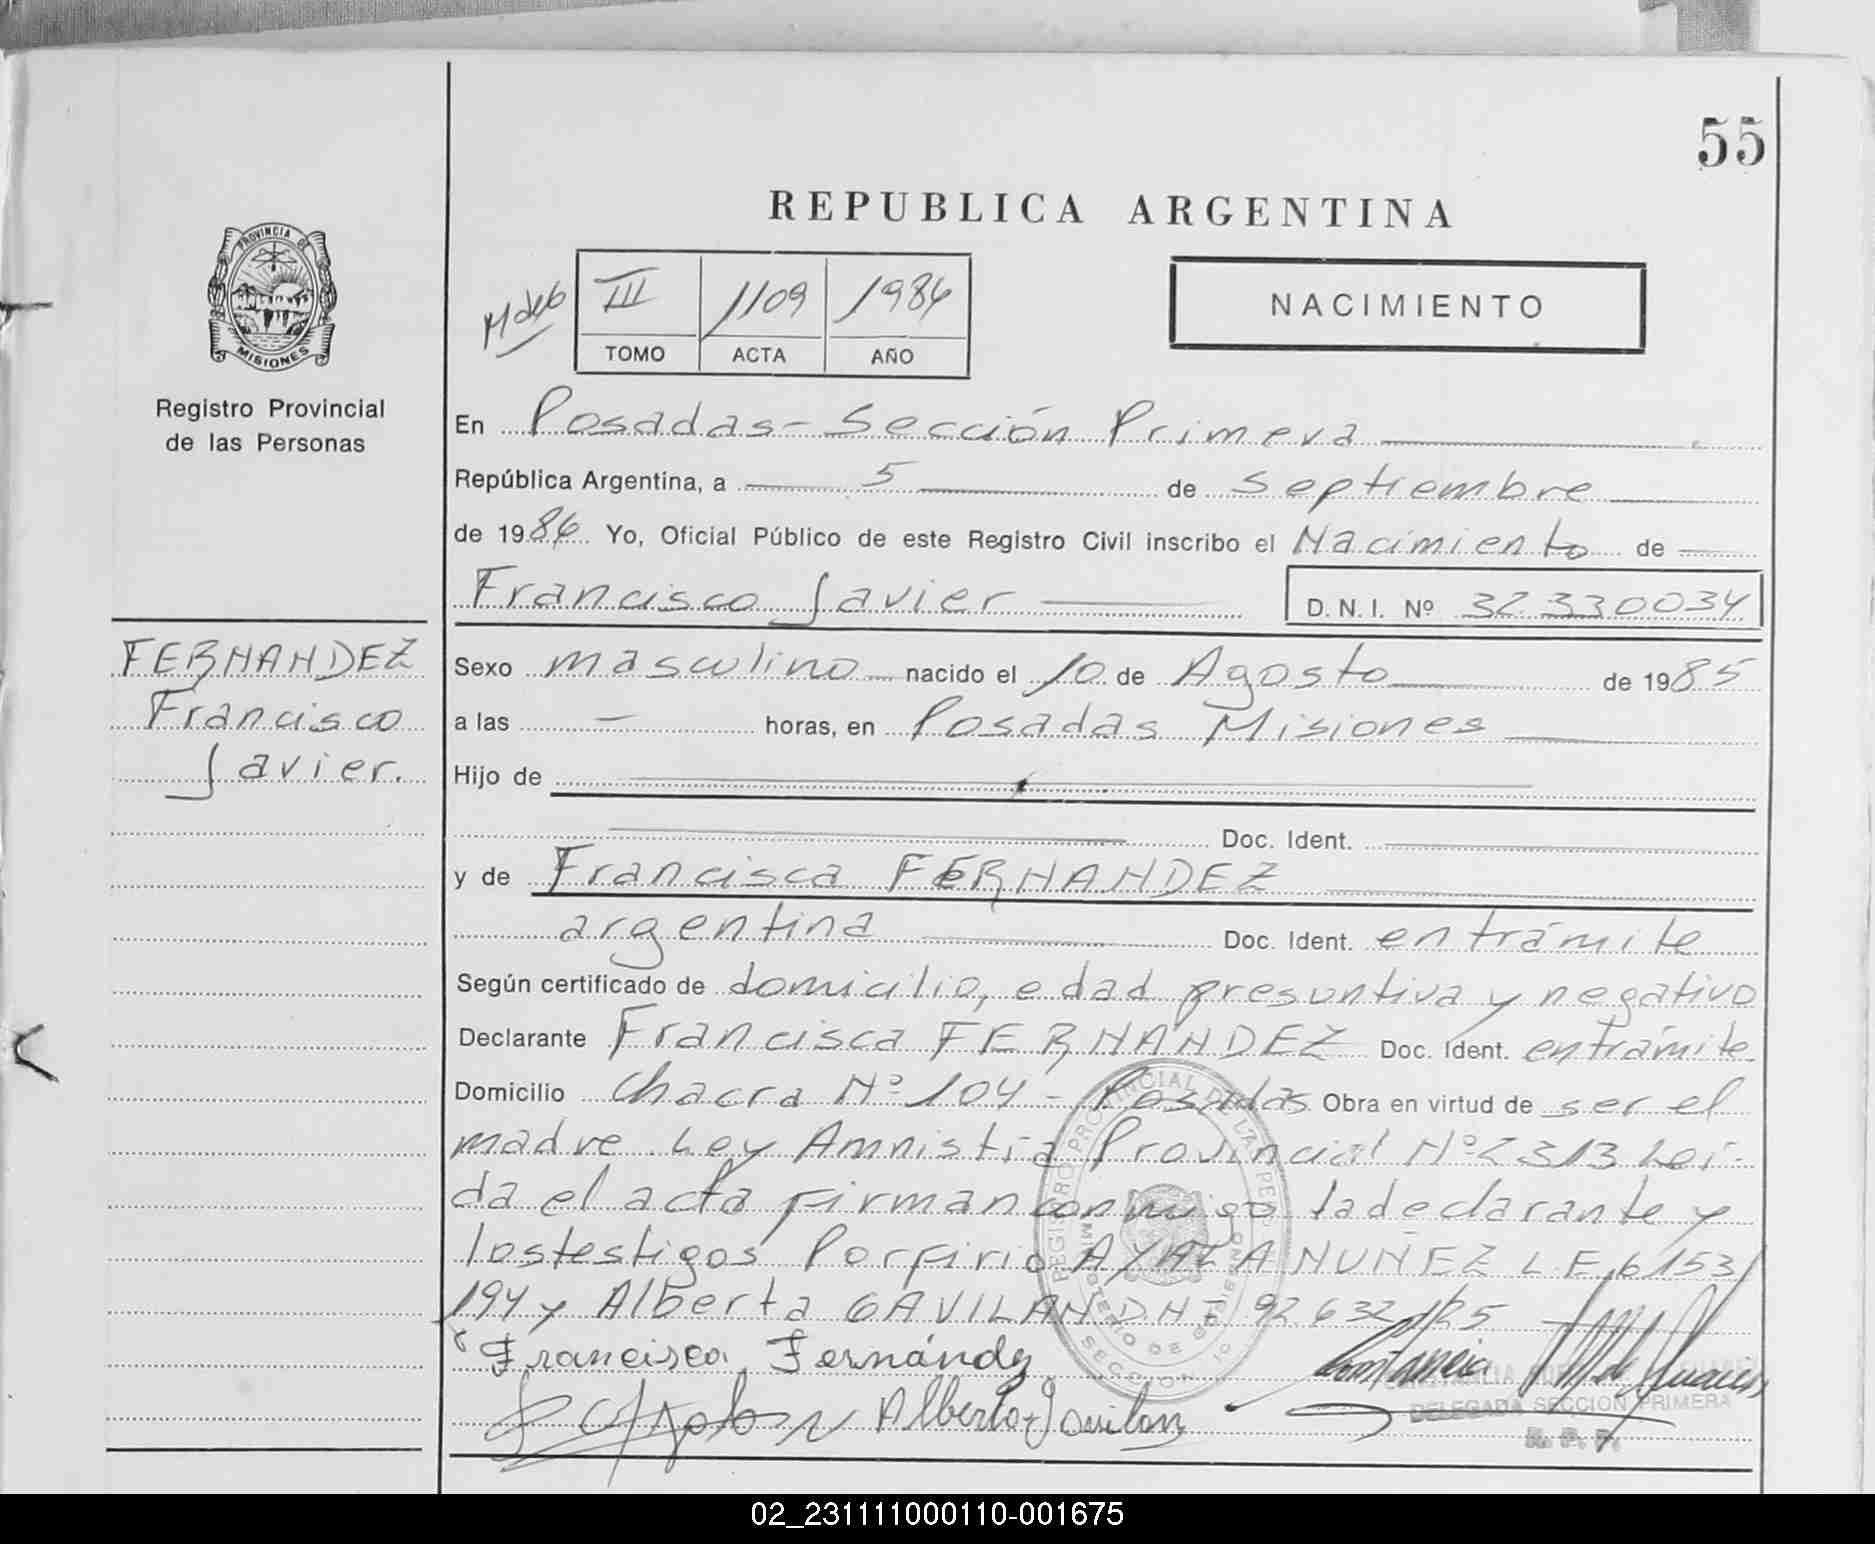 55
REPUBLICA ARGENTINA
PROVINCIA DE
MISIONES
Registro Provincial
de las Personas
III 1109 1986
TOMO ACTA AÑO
NACIMIENTO
En Posadas - Sección Primera
República Argentina, a 5 de septiembre
de 1986 Yo, Oficial Público de este Registro Civil inscribo el Nacimiento de
Francisco Javier D. N. I. Nº 32 330034
FERNANDEZ
Francisco
Javier.
Sexo masculino nacido el 10 de Agosto de 1985
a las — horas, en Posadas Misiones
Hijo de
Doc. Ident.
y de Francisca FERNANDEZ
argentina Doc. Ident. en trámite
Según certificado de domicilio, edad presuntiva y negativo
Declarante Francisca FERNANDEZ Doc. Ident. en trámite
Domicilio Chacra Nº 104 - Posadas Obra en virtud de ser el
madre. Ley Amnistia Provincial Nº 2313 Lei-
da el acta firman conmigo la declarante y
los testigos Porfirio AYALA NUÑEZ L.E. 6153
194 y Alberta GAVILAN DNI 92 632 125
Francisca Fernández
Alberta Gavilan
DELEGADA SECCION PRIMERA
R. P. P.
02_231111000110-001675